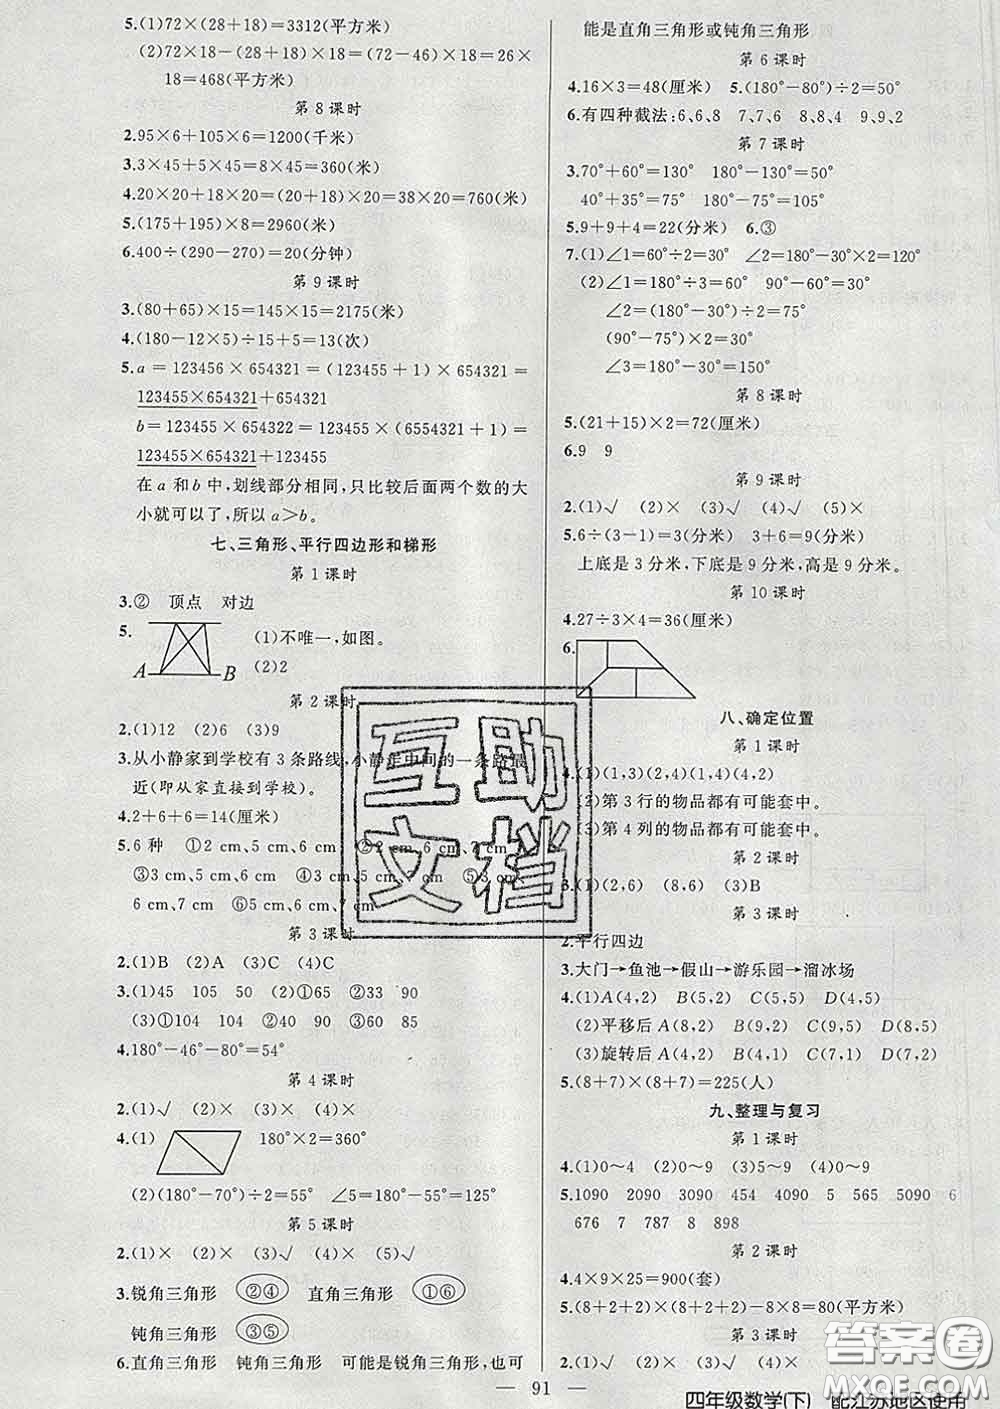 5.(1)72×(28+18)=3312(平方米)
(2)72×18-(28+18)×18=(72-46)×18=26×
18=468(平方米)
第 8 课时
2.95×6+105×6=1200(千米)
3.3×45+5×45=8×45=360(米)
4.20×20+18×20=(20+18)×20=38×20=760(米)
5.(175+195)×8=2960(米)
6.400÷(290-270)=20(分钟)
第 9 课时
3.(80+65)×15=145×15=2175(米)
4.(180-12×5)÷15+5=13(次)
5.a=123456×654321=(123455+1)×654321=
123455×654321+654321
b=123455×654322=123455×(6554321+1)=
123455×654321+123455
在 a 和 b 中,划线部分相同,只比较后面两个数的大
小就可以了,所以 a>b。
七、三角形、平行四边形和梯形
第 1 课时
3.② 顶点 对边
5.
A B
(1)不唯一,如图。
(2)2
第 2 课时
2.(1)12 (2)6 (3)9
3.从小静家到学校有 3 条路线,小静走中间的一条路最
近(即从家直接到学校)。
4.2+6+6=14(厘米)
5.6 种 ①2 cm、5 cm、6 cm ②2 cm、6 cm、7 cm
③3 cm、5 cm、6 cm ④3 cm、5 cm、7 cm ⑤3 cm、
6 cm、7 cm ⑥5 cm、6 cm、7 cm
第 3 课时
2.(1)B (2)A (3)C (4)C
3.(1)45 105 50 (2)①65 ②33 90
(3)①104 104 ②40 90 ③60 85
4.180°-46°-80°=54°
第 4 课时
2.(1)√ (2)× (3)× (4)√
4.(1)
180°×2=360°
(2)(180°-70°)÷2=55° ∠5=180°-55°=125°
第 5 课时
2.(1)× (2)× (3)√ (4)× (5)√
3.锐角三角形 ②④ 直角三角形 ①⑥
钝角三角形 ③⑤
6.直角三角形 钝角三角形 可能是锐角三角形,也可
能是直角三角形或钝角三角形
第 6 课时
4.16×3=48(厘米) 5.(180°-80°)÷2=50°
6.有四种截法:6、6、8 7、7、6 8、8、4 9、9、2
第 7 课时
3.70°+60°=130° 180°-130°=50°
40°+35°=75° 180°-75°=105°
5.9+9+4=22(分米) 6.③
7.(1)∠1=60°÷2=30° ∠2=180°-30°×2=120°
(2)∠1=180°÷3=60° 90°-60°=30°
∠2=(180°-30°)÷2=75°
(90°-75°)×2=30°
∠3=180°-30°=150°
第 8 课时
5.(21+15)×2=72(厘米)
6.9 9
第 9 课时
2.(1)√ (2)× (3)√ (4)√ (5)×
5.6÷(3-1)=3(分米) 3+6=9(分米)
上底是 3 分米,下底是 9 分米,高是 9 分米。
第 10 课时
4.27÷3×4=36(厘米)
6.
八、确定位置
第 1 课时
4.(1)(1,3)(2,4)(4,1)(4,2)
(2)第 3 行的物品都有可能套中。
(3)第 4 列的物品都有可能套中。
第 2 课时
3.(1)(2,6) (8,6) (3)B
第 3 课时
2.平行四边
3.大门→鱼池→假山→游乐园→溜冰场
4.(1)A(4,2) B(5,2) C(5,5) D(4,5)
(2)平移后 A(8,2) B(9,2) C(9,5) D(8,5)
(3)旋转后 A(4,2) B(4,1) C(7,1) D(7,2)
5.(8+7)×(8+7)=225(人)
九、整理与复习
第 1 课时
4.(1)0~4 (2)0~9 (3)5~9 (4)0~9
5.1090 2090 3090 454 4090 5 565 5090 6
676 7 787 8 898
第 2 课时
4.4×9×25=900(套)
5.(8+2+2)×(8+2+2)-8×8=80(平方米)
第 3 课时
2.(1)√ (2)√ (3)× (4)√ (5)×
— 91 —
四年级数学(下) 配江苏地区使用
互助
文档
答案圈
MXQE.COM